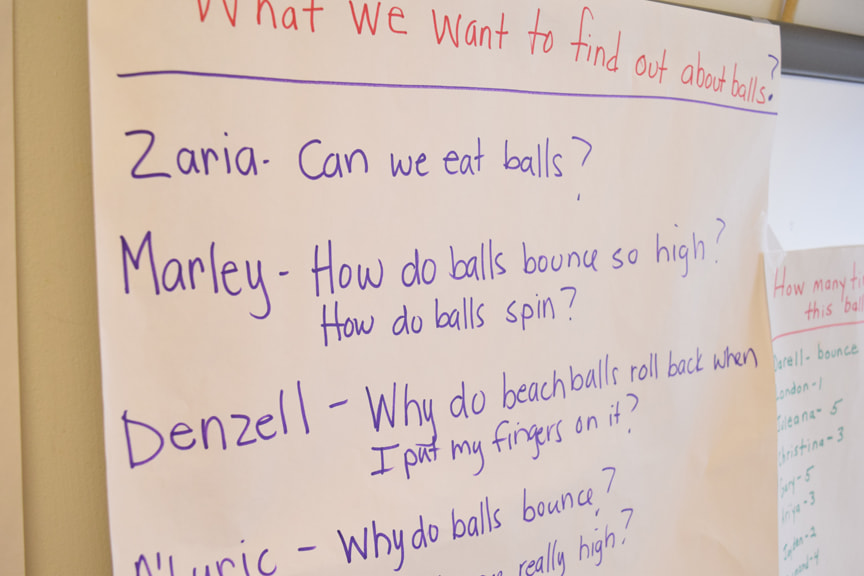 What we want to find out about balls?
Zaria- Can we eat balls?
Marley - How do balls bounce so high?
How do balls spin?
Denzell - Why do beachballs roll back when
I put my fingers on it?
- Why do balls bounce?
really high?
How many
this
Darell- bounce
London-1
- 5
Christina-3
- 5
- 3
- 2
- 4